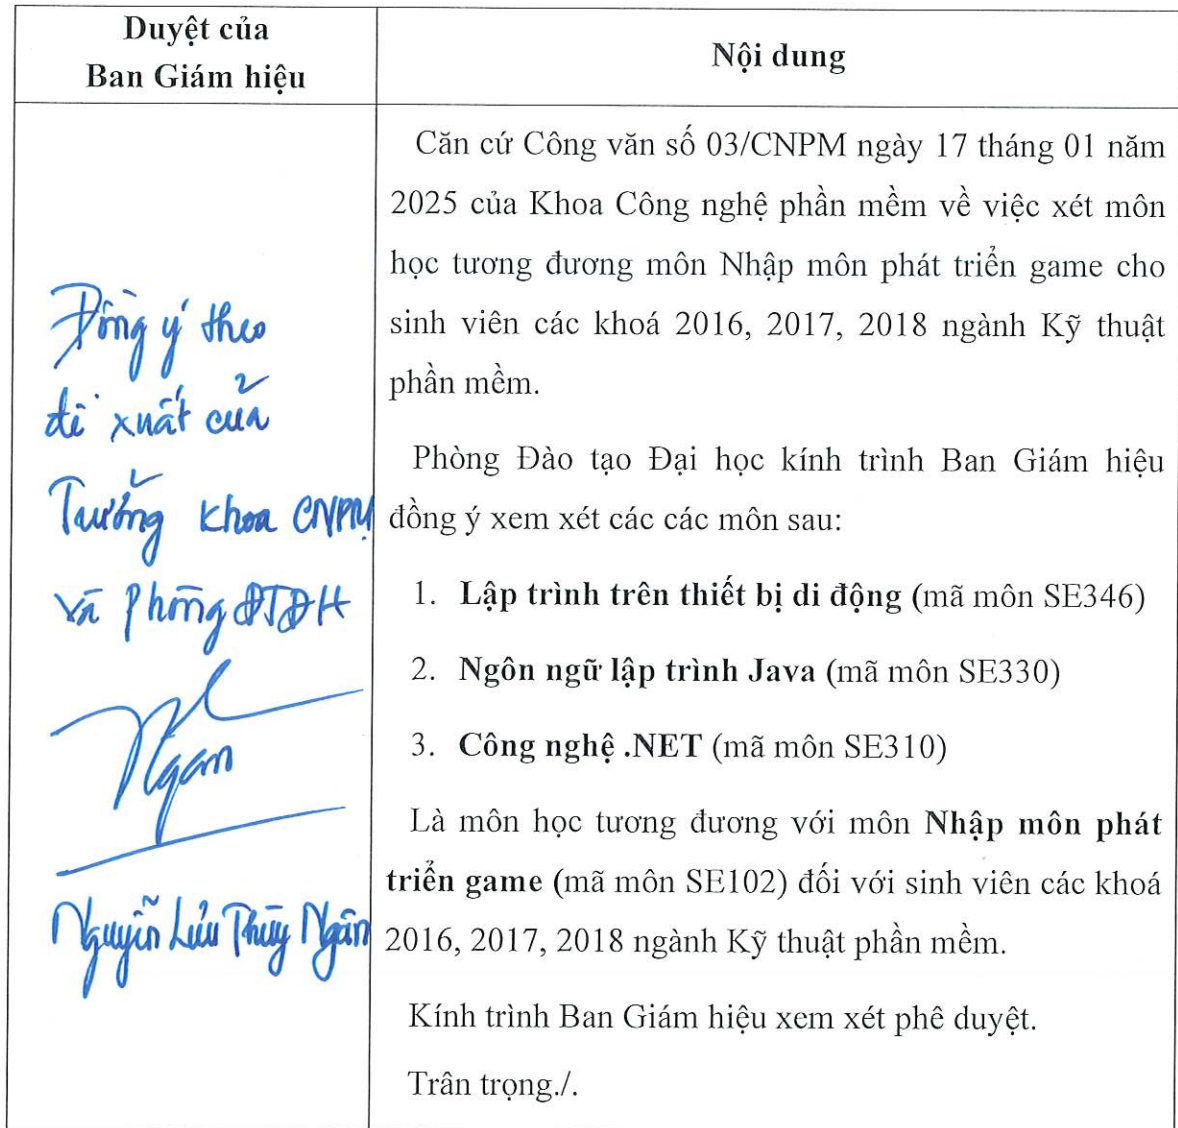 Duyệt của
Ban Giám hiệu
Nội dung
Đồng ý theo
đề xuất của
Trưởng khoa CNPM
và Phòng ĐTĐH
Ngan
Nguyễn Lưu Thùy Ngân
Căn cứ Công văn số 03/CNPM ngày 17 tháng 01 năm
2025 của Khoa Công nghệ phần mềm về việc xét môn
học tương đương môn Nhập môn phát triển game cho
sinh viên các khoá 2016, 2017, 2018 ngành Kỹ thuật
phần mềm.
Phòng Đào tạo Đại học kính trình Ban Giám hiệu
đồng ý xem xét các các môn sau:
1. Lập trình trên thiết bị di động (mã môn SE346)
2. Ngôn ngữ lập trình Java (mã môn SE330)
3. Công nghệ .NET (mã môn SE310)
Là môn học tương đương với môn Nhập môn phát
triển game (mã môn SE102) đối với sinh viên các khoá
2016, 2017, 2018 ngành Kỹ thuật phần mềm.
Kính trình Ban Giám hiệu xem xét phê duyệt.
Trân trọng./.